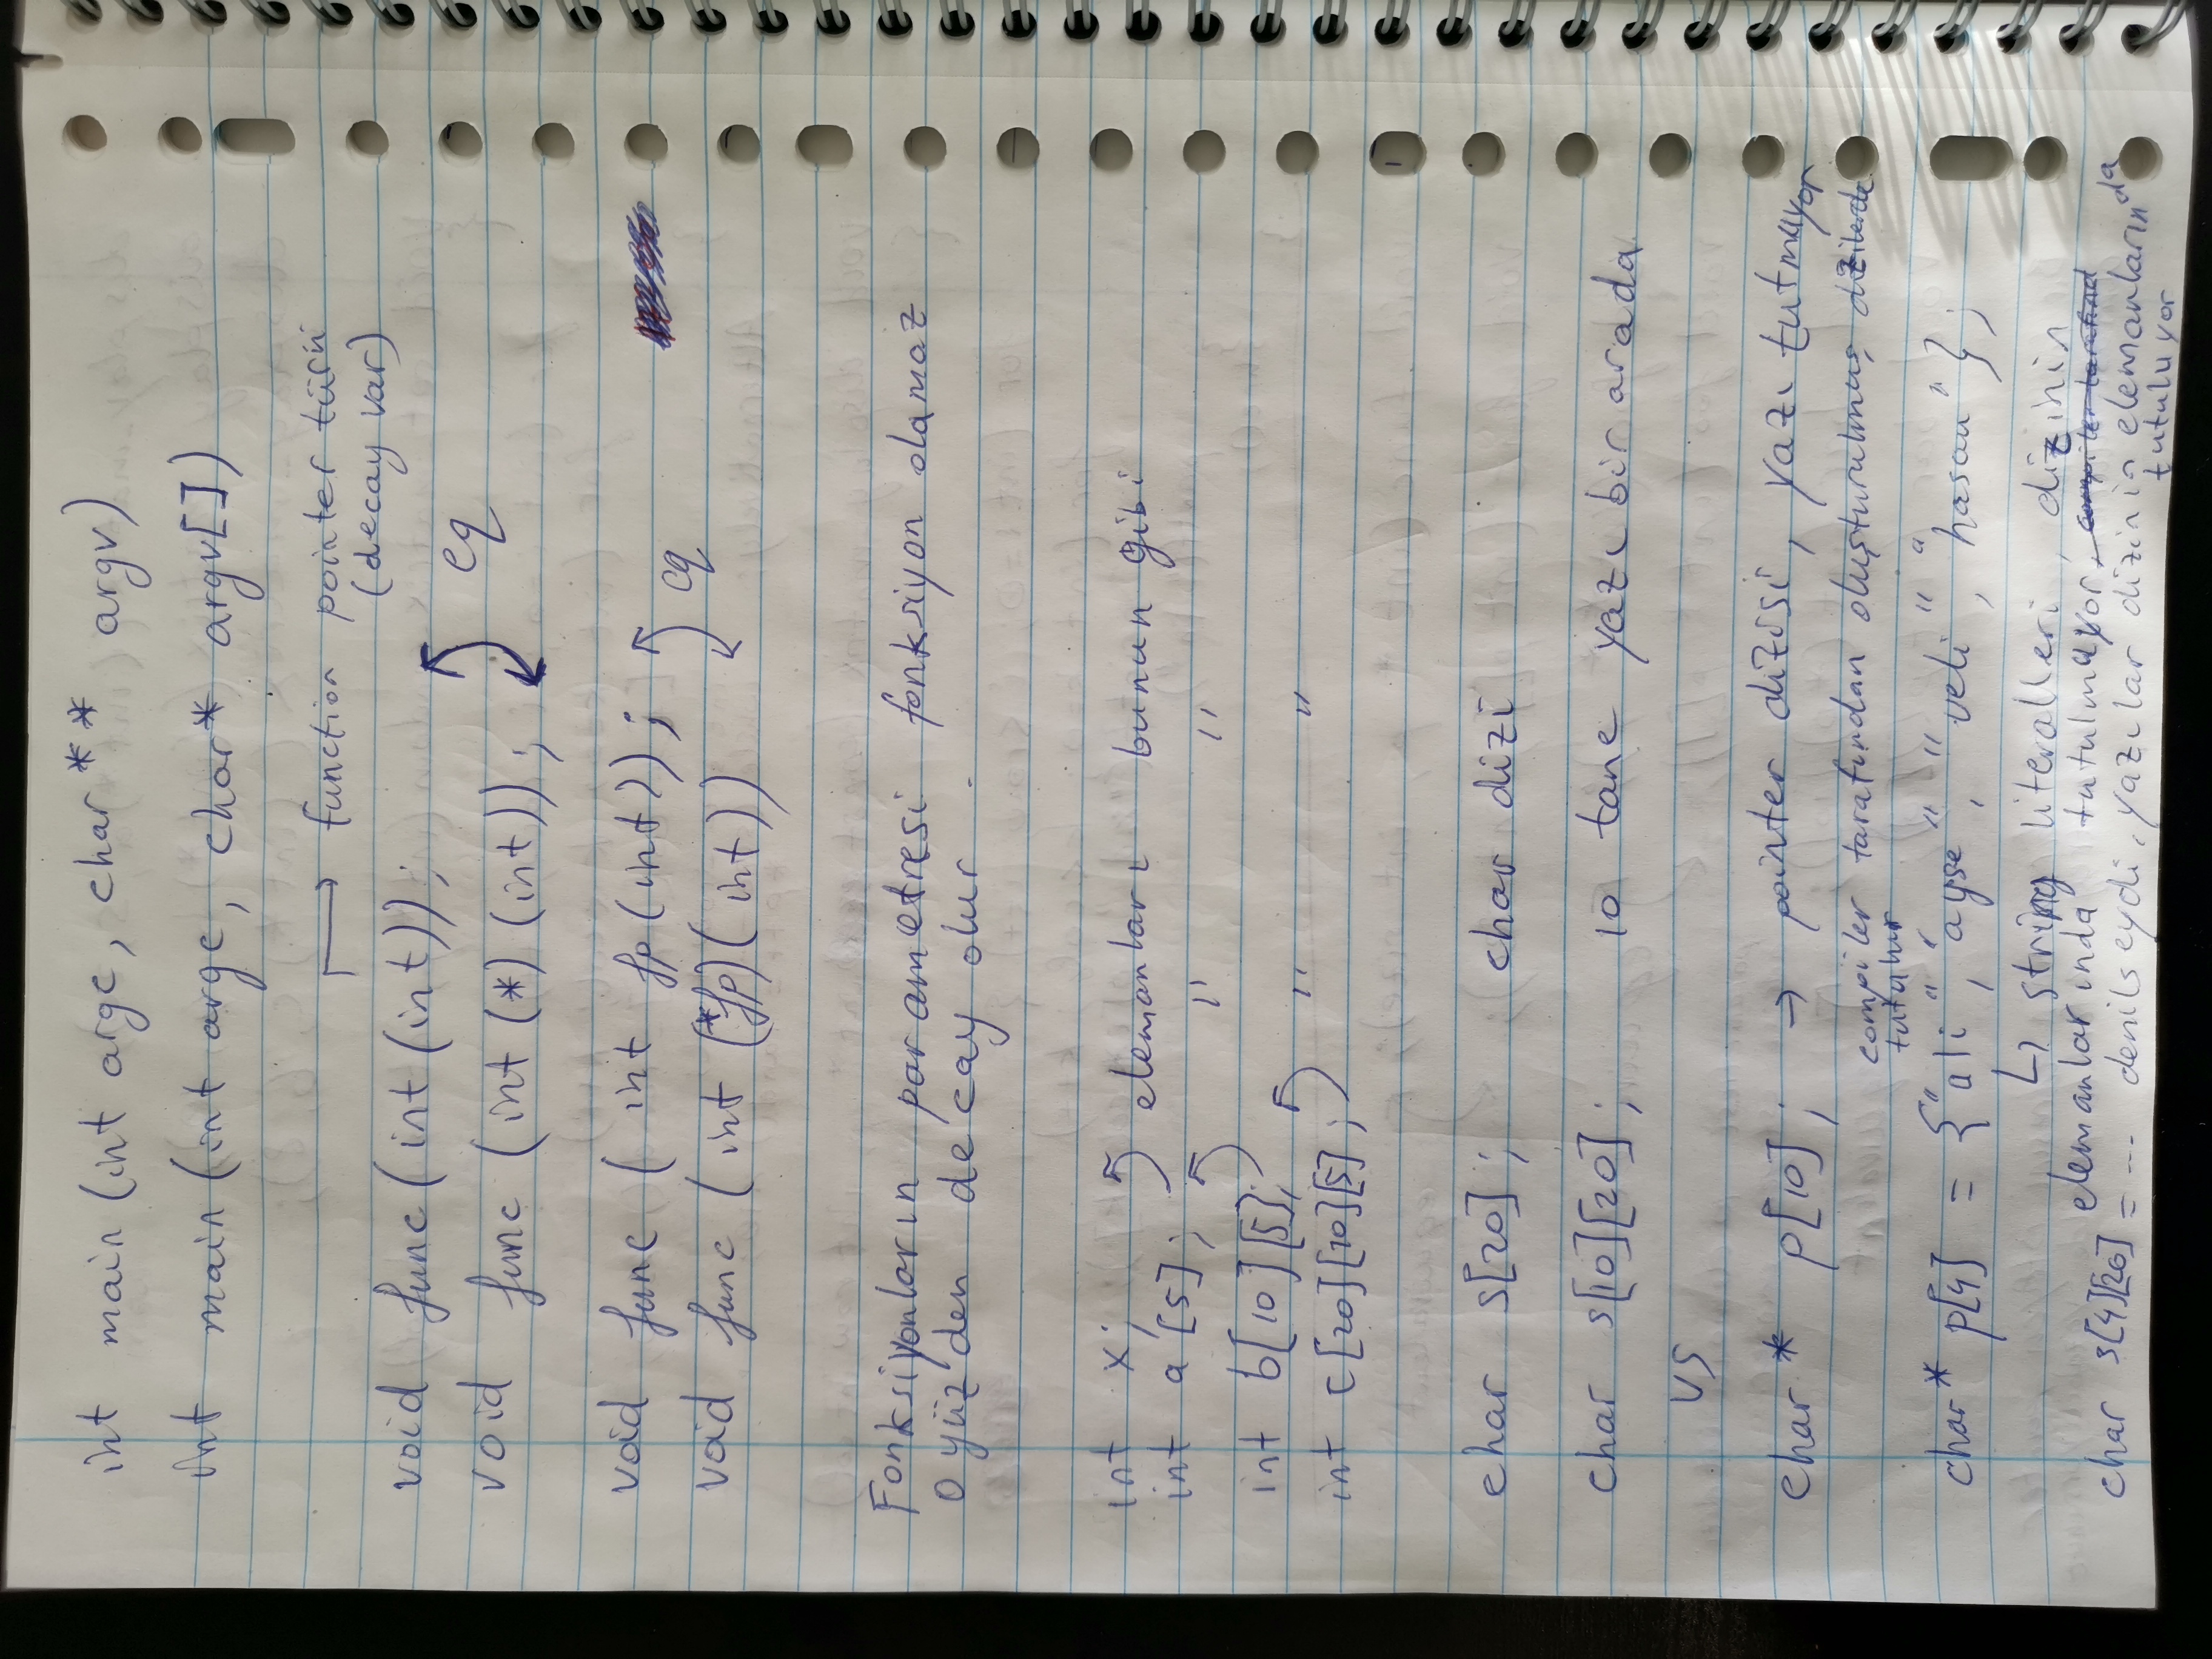 int main (int argc, char** argv)
int main (int argc, char* argv[])
↦ function pointer türü
(decay var)
void func (int (int));
void func (int (*) (int));
eq
void func ( int fp (int));
void func ( int (*fp) ( int))
eq
Fonksiyonların parametresi fonksiyon olamaz
O yüzden decay olur.
int x;
elemanları bunun gibi
int a [5];
" "
int b[10][5];
" "
int c[20][10][5];
char s[20]; char dizi
char s[10][20]; 10 tane yazı bir arada
vs
char * p[10]; → pointer dizisi, yazı tutmuyor
compiler tarafından oluşturulmuş dizilerde
tutulur
char* p[4] = {"ali", "ayse", "veli", "hasan"};
↳ string literalleri, dizinin
elemanlarında tutulmuyor, compiler tarafınd
char s[4][20] = ... denilseydi, yazılar dizinin elemanlarında
tutuluyor